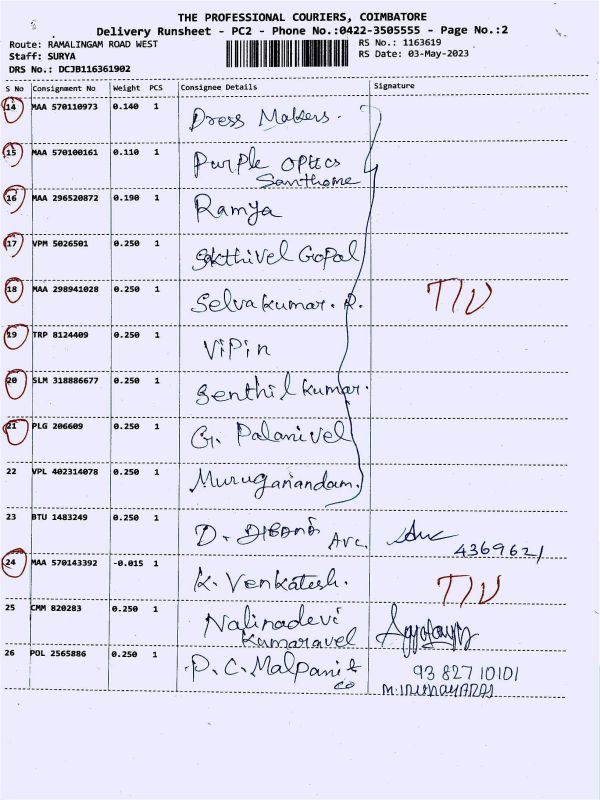 THE PROFESSIONAL COURIERS, COIMBATORE
Delivery Runsheet - PC2 - Phone No.:0422-3505555 - Page No.:2
Route: RAMALINGAM ROAD WEST
RS No.: 1163619
Staff: SURYA
RS Date: 03-May-2023
DRS No.: DCJB116361902
S No Consignment No Weight PCS Consignee Details Signature
14 MAA 570110973 0.140 1 Dress Makers.
15 MAA 570100161 0.110 1 Purple Optics
Santhome
16 MAA 296520872 0.190 1 Ramya
17 VPM 5026501 0.250 1 Sakthivel Gopal
18 MAA 298941028 0.250 1 Selvakumar. P. T/U
19 TRP 8124409 0.250 1 Vipin
20 SLM 318886677 0.250 1 Senthilkumar.
21 PLG 206609 0.250 1 G. Palanivel
22 VPL 402314078 0.250 1 Muruganandam.
23 BTU 1483249 0.250 1 D. Avc.
4369621
24 MAA 570143392 -0.015 1 K. Venkatesh. T/U
25 CMM 820283 0.250 1 Nalinadevi
Kumaravel
26 POL 2565886 0.250 1 P. C. Malpani &
Co
93 827 10101